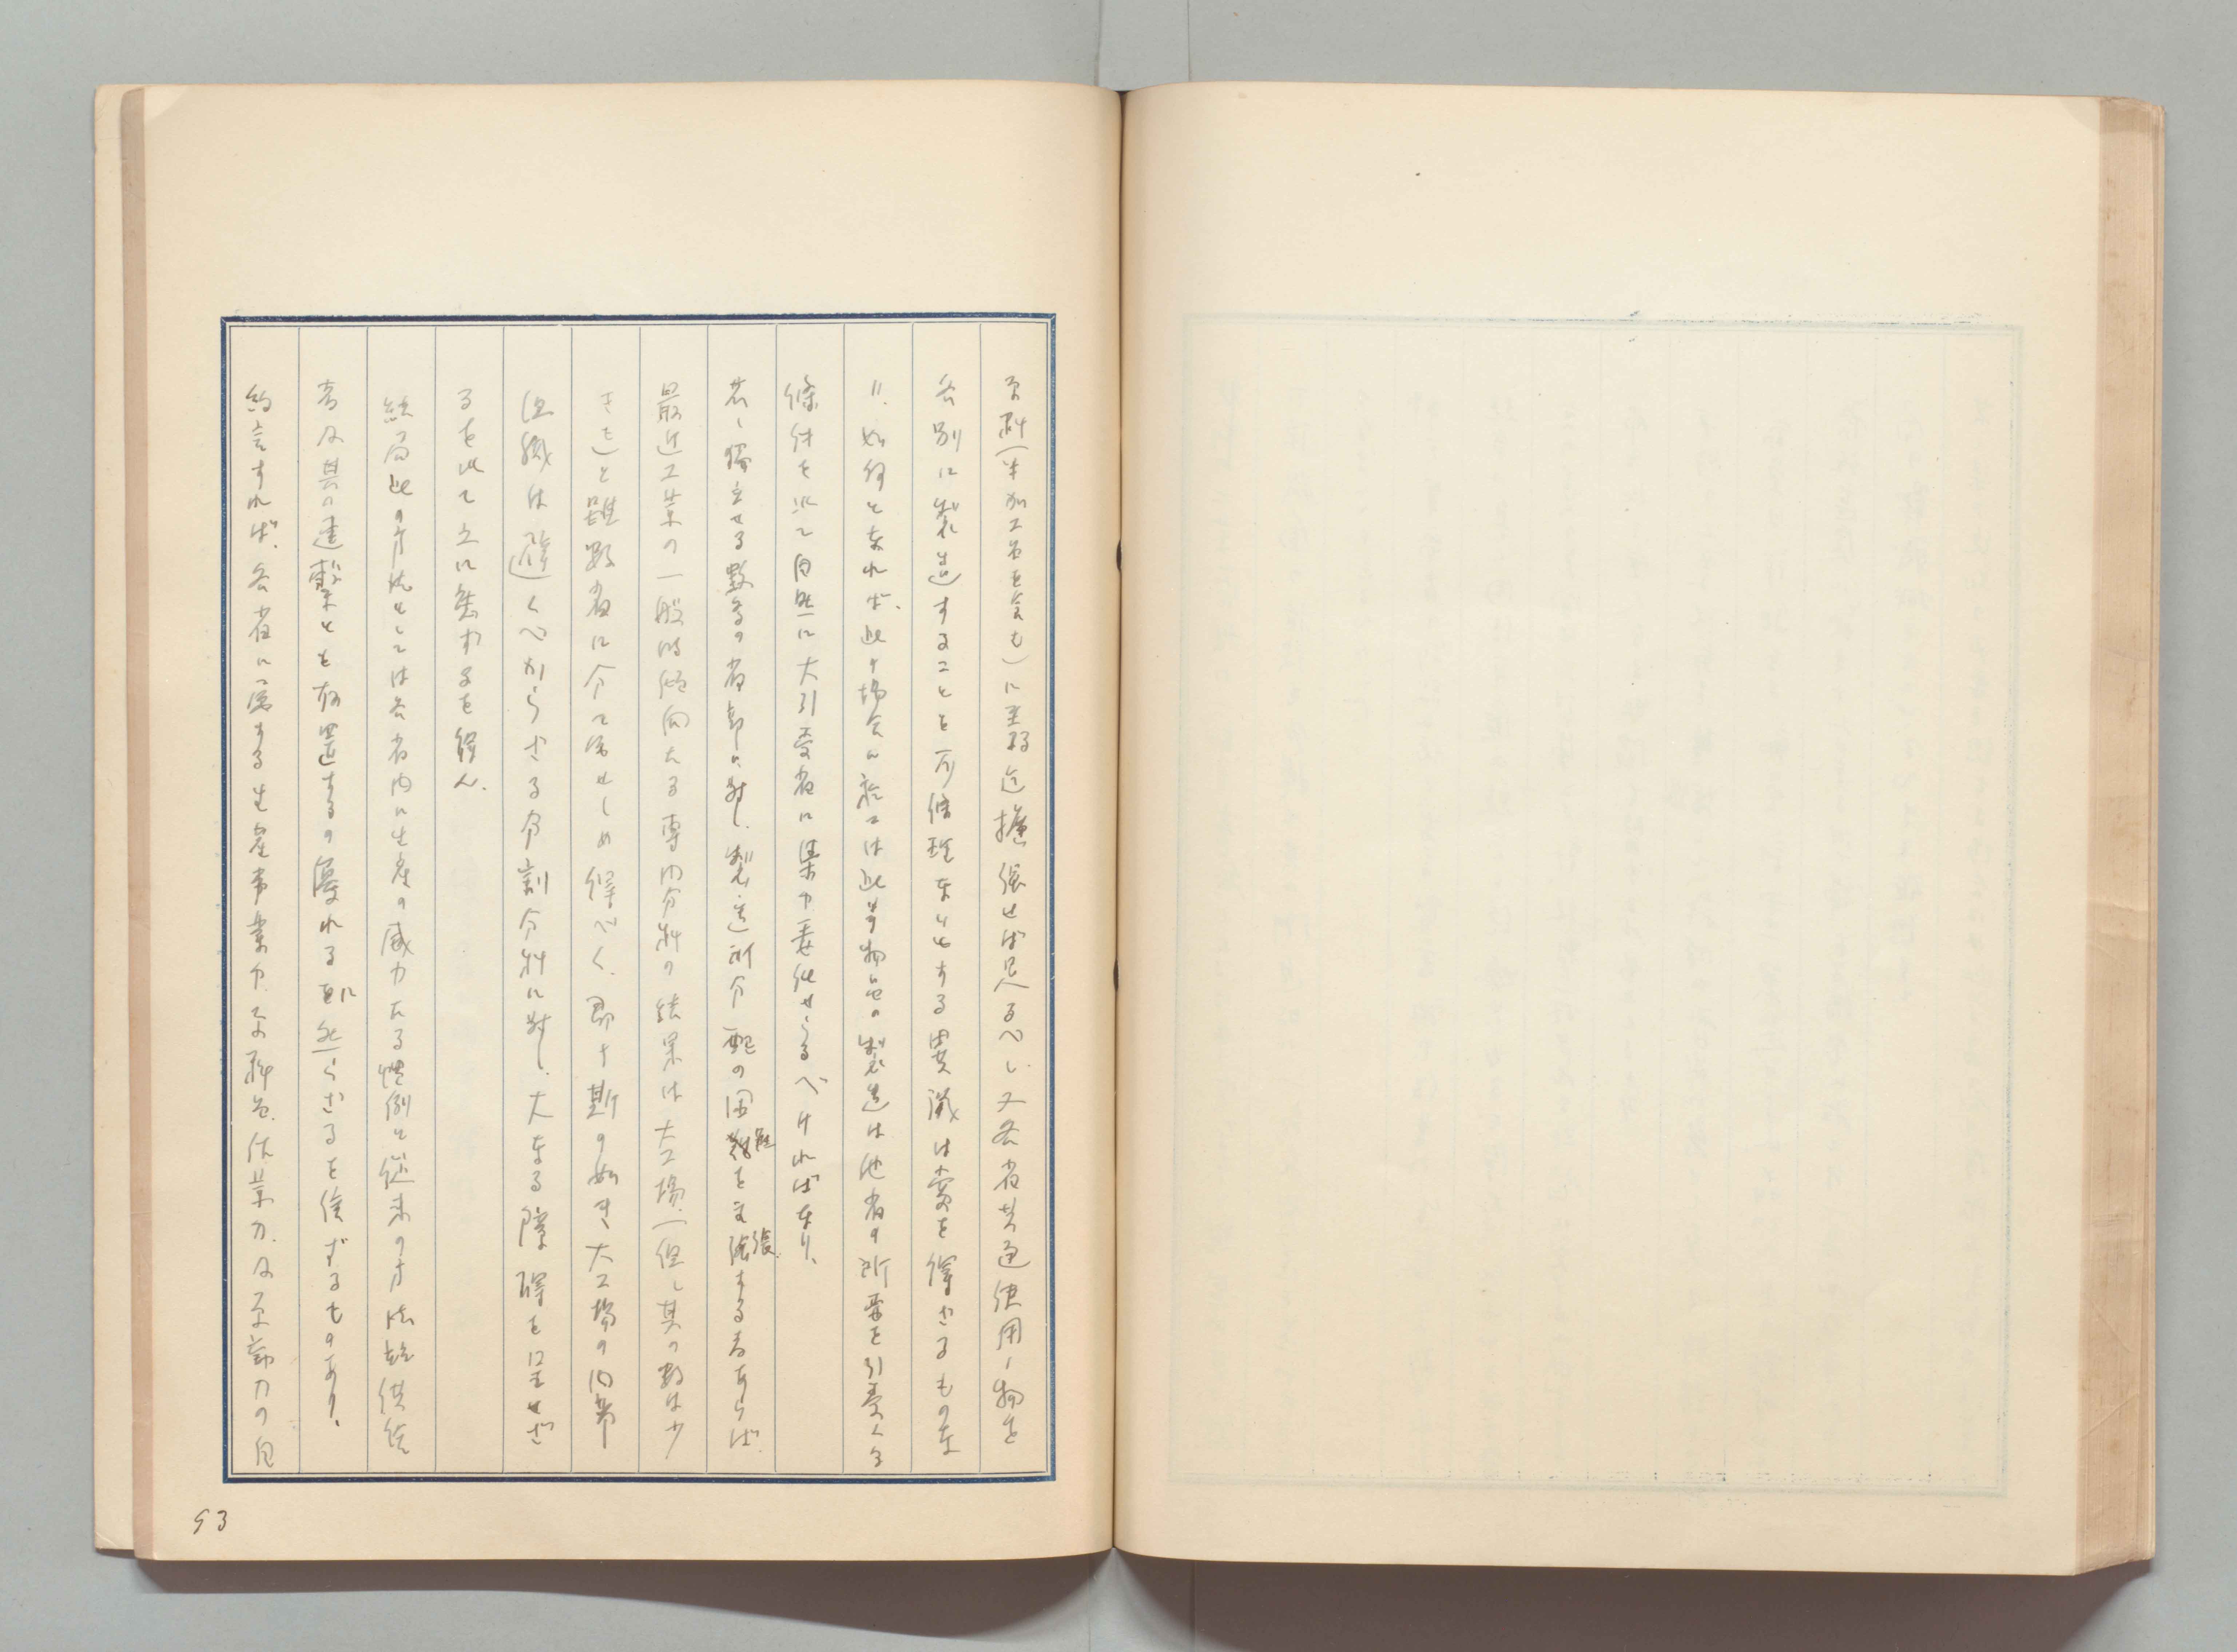 原料(半加工品を含む)に主努迄拡張せば足るべし、又各省共通使用ノ物を
各別に製造することを可條理なりとする異議は蒙を得ざるものな
り。如何となれば、此ノ場合に於ては此等物品の製造は他省の所要を引受くる
條件を以て自然に大引受省に集中専従せらるべければなり、
若し獨立せる數多の省部に対し、製造所分配の困難を主張する者あらば、
最近工業の一般的傾向たる専門分科の結果は大工場(但し其の数は少
きも)と雖数省に分て属せしめ得べく、即ち斯の如き大工場の内部
組織は避くべからざる分割分科に対し、大なる障碍を呈せざ
るを以て立に無する を得ん、
結局此の方法としては各省内に生産の威力たる慣例と従来の方法、供給
者及其の連繋とを放置するの優れるに如らざるを信ずるものあり、
約言すれば、各省に属する生産事業中、原料品、作業力、及原動力の自
93